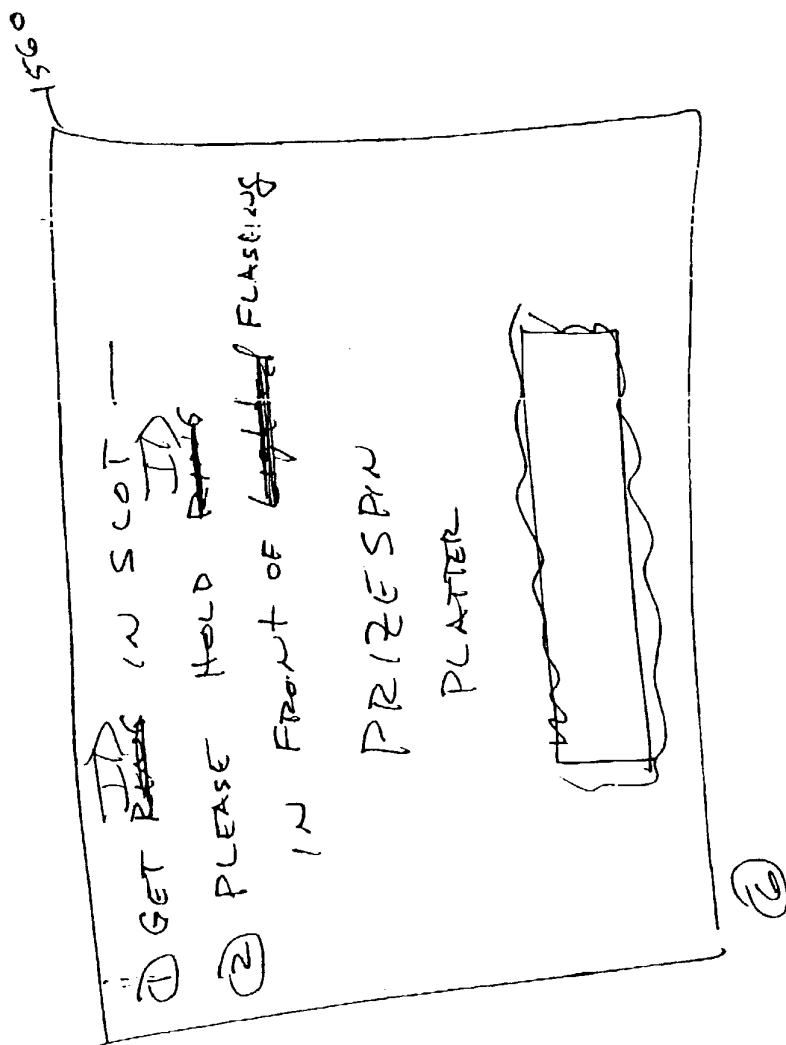 1560
ID
① GET IN SLOT —
ID
② PLEASE HOLD
IN FRONT OF FLASEING
PRIZE SPIN
PLATTER
⑥